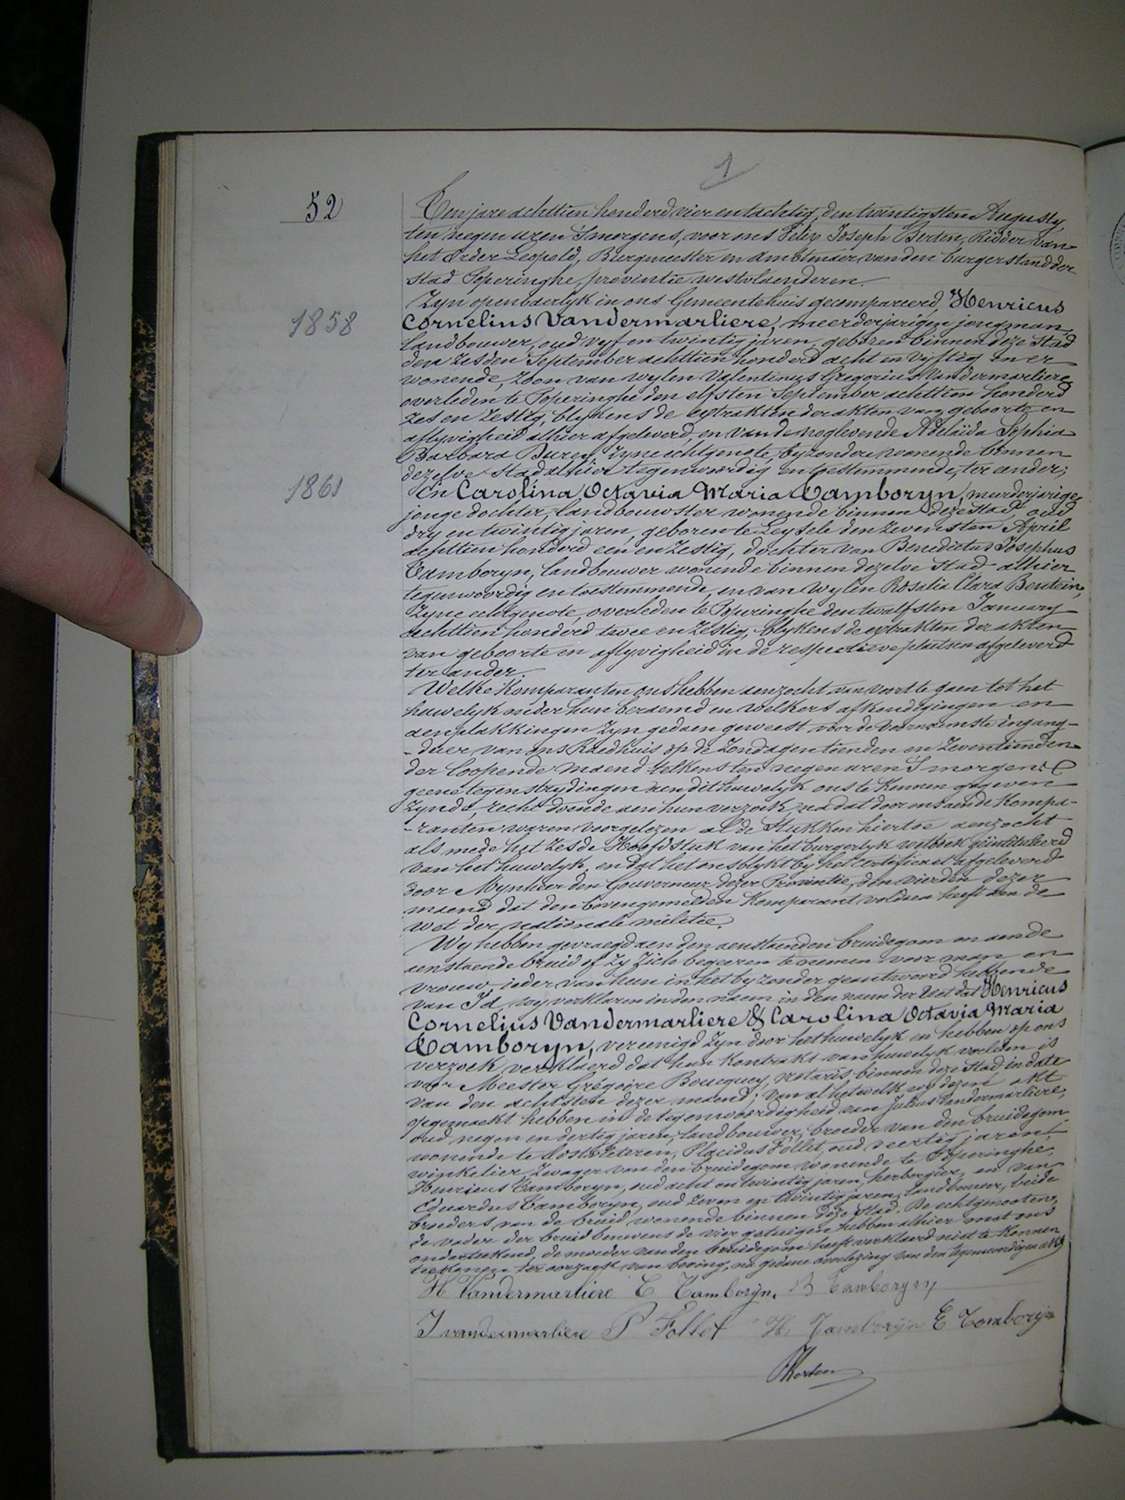 1
52
Ten jare achttien honderd vier en tachtig, den twintigsten Augusty,
ten negen uren S'morgens, voor ons Felix Joseph Berten, Ridder van
het Order Leopold, Burgmeester en amblenaer van den burgerstand der
stad Poperinghe, provintie westvlaenderen.
Zyn openbaerlyk in ons Gemeentehuis gecompareerd, Henricus
1858
Cornelius Vandermarliere, meerderjarigen jongman,
landbouwer, oud vyf en twintig jaren, geboren binnen deze Stad
den zesden September achttien honderd acht en vyftig en er
wonende, zoon van wylen Valentinus Gregorius Vandermarliere,
overleden te Poperinghe den elfsten September achttien honderd
zes en zestig, blykens de extrakten der akten van geboorte en
aflyvigheid alhier afgeleverd, en van de noglevende Adelaïda Sophia
Barbara Buren, zyne echtgenote, byzondere wonende binnen
dezelve stad alhier tegenwoordig en toestemmende, ter ander;
1861
En Carolina Octavia Maria Tamboryn, meerderjarige
jonge dochter, landbouwster wonende binnen deze stad, oud
dry en twintig jaren, geboren te Leysele den zevensten April
achttien honderd een en zestig, dochter van Benedictus Josephus
Tamboryn, landbouwer wonende binnen dezelve stad alhier
tegenwoordig en toestemmende, en van wylen Rosalia Clara
zyne echtgenote, overleden te Poperinghe den twalfsten January
achttien honderd twee en zestig, blykens de extrakten der akten
van geboorte en aflyvigheid in de respectieve plaetsen afgeleverd
ter ander.
Welke Komparanten ons hebben aenzocht van voort te gaen tot het
huwelyk onder hun beraemd en welkers afkondigingen en
aenplakkingen zyn gedaen geweest voor de voornaemste ingang-
-deur van ons Raedhuis op de zondagen tienden en zeventienden
der loopende maend telkens ten negen uren S'morgens. &
geene tegenstrydingen aen dit huwelyk ons te kennen gegeven
zynde, recht doende aen hun verzoek, na dat door ons aen de Kompa-
-ranten waren voorgelezen al de Stukken hiertoe aenzocht
als mede het zesde Hoofdstuk van het burgerlyk wetboek geïntituleerd
van het huwelyk, en dat het ons blykt by het certificaet afgeleverd
door Mynheer den Gouverneur dezer Provintie, den vierden dezer
maend dat den bovengemelden Komparant voldaen heeft aen de
wet der nationale militie.
Wy hebben gevraegd aen den aenstaenden bruidegom en aen de
aenstaende bruid of zy zich begeeren te nemen voor man en
vrouw, ieder van hun in het byzonder geantwoord hebbende
van Ja, wy verklaren in den naem der wet dat Henricus
Cornelius Vandermarliere & Carolina Octavia Maria
Tamboryn, vereenigd zyn door het huwelyk en hebben op ons
verzoek verklaerd dat hun kontrakt van huwelyk verleden is
voor Meester Grégoire Boucquey, notaris binnen deze Stad in date
van den achtsten dezer maend; van al het welk wy dezen akt
opgemaekt hebben in de tegenwoordigheid van Julius Vandermarliere,
oud negen en dertig jaren, landbouwer, broeder van den bruidegom
wonende te Oostvleteren, Placidus Follet, oud veertig jaren,
winkelier, zwager van den bruidegom wonende te Poperinghe,
Henricus Tamboryn, oud acht en twintig jaren, herbergier, en van
Eduardus Tamboryn, oud zeven en twintig jaren, landbouwer, beide
broeders van de bruid, wonende binnen deze stad. De echtgenooten,
de vader der bruid benevens de vier getuigen hebben alhier met ons
onderteekend, de moeder van den bruidegom heeft verklaerd niet te konnen
teekenen ter oorzaek van beving, na gedane voorlezing van den tegenwoordigen akt.
H Vandermarliere C Tamboryn. B Tamboryn
J vandermarliere P Follet H. Tamboryn E Tamboryn
Berten